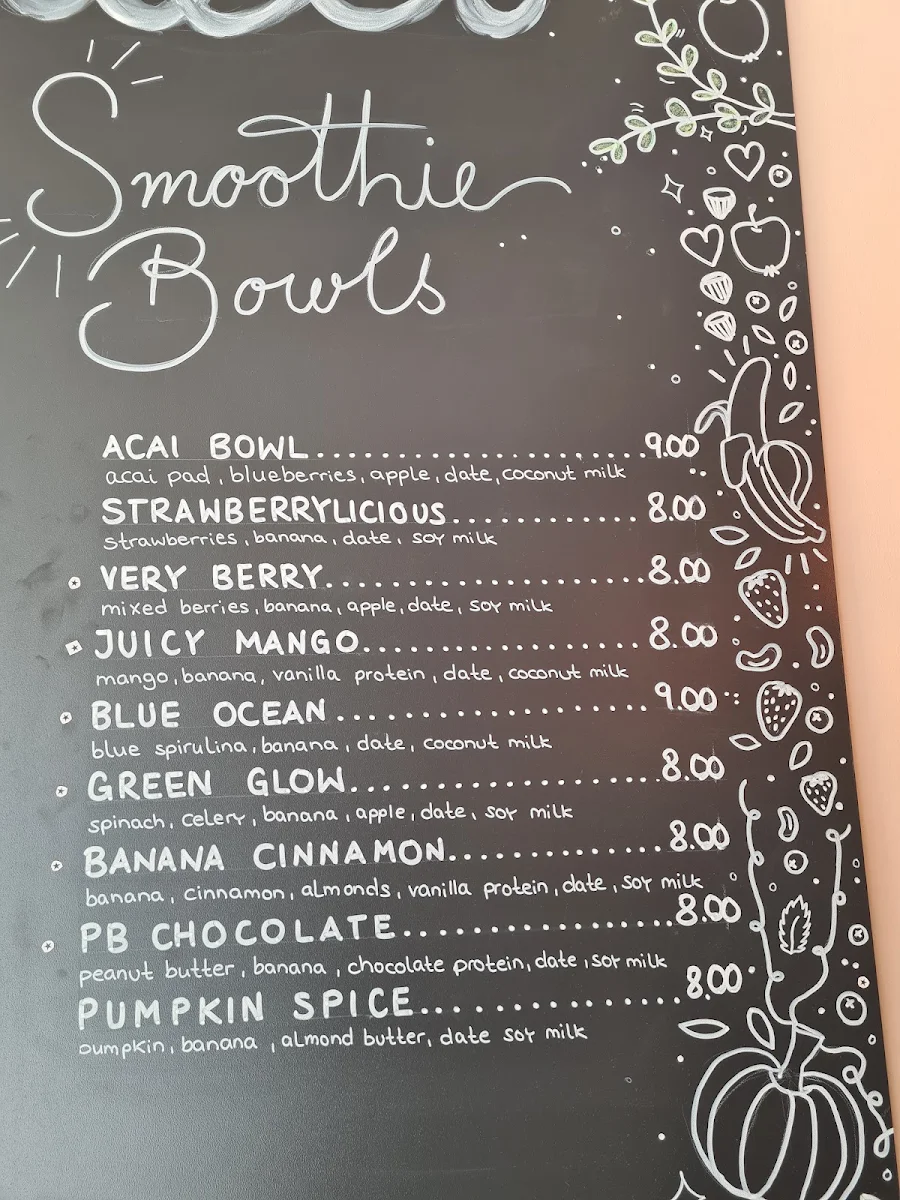 Smoothie
Bowls
ACAI BOWL.......................9.00
acai pad, blueberries, apple, date, coconut milk
STRAWBERRYLICIOUS............8.00
strawberries, banana, date, soy milk
VERY BERRY......................8.00
mixed berries, banana, apple, date, soy milk
JUICY MANGO....................8.00
mango, banana, vanilla protein, date, coconut milk
BLUE OCEAN.....................9.00
blue spirulina, banana, date, coconut milk
GREEN GLOW.....................8.00
spinach, celery, banana, apple, date, soy milk
BANANA CINNAMON..............8.00
banana, cinnamon, almonds, vanilla protein, date, soy milk
PB CHOCOLATE..................8.00
peanut butter, banana, chocolate protein, date, soy milk
PUMPKIN SPICE.................8.00
pumpkin, banana, almond butter, date soy milk